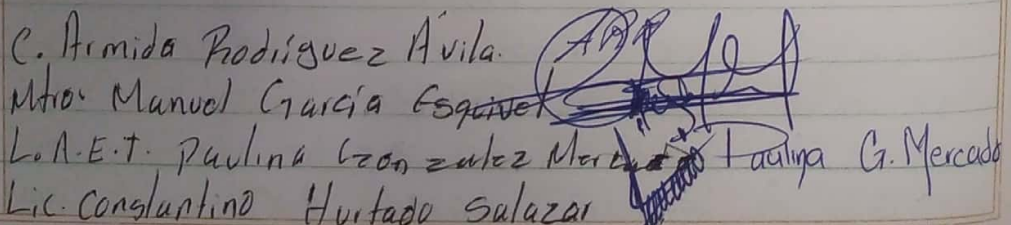 C. Armida Rodríguez Ávila. ARA
Mtro. Manuel García Esquivel
L.A.E.T. Paulina Gonzalez Mercado Paulina G. Mercado
Lic. Constantino Hurtado Salazar